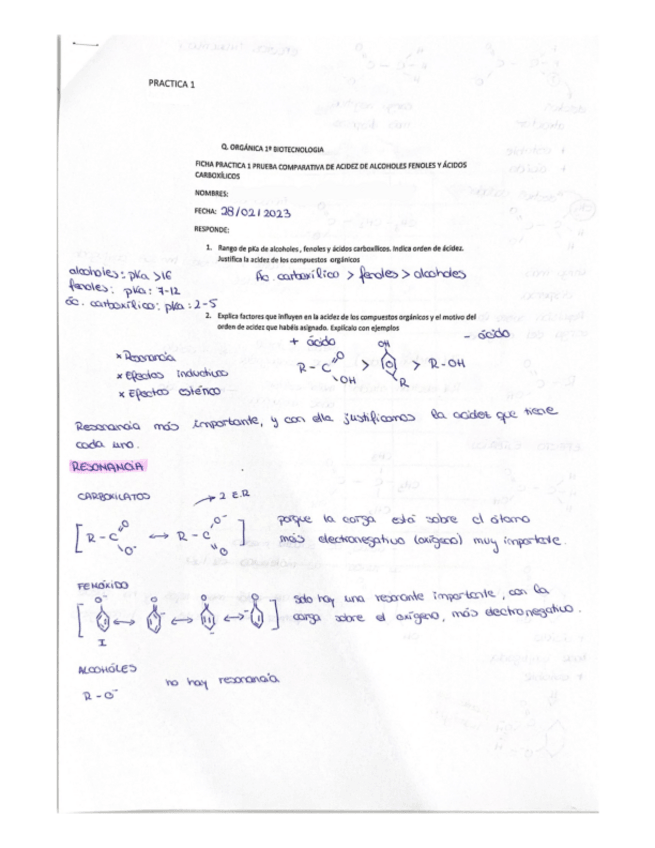 PRACTICA 1
Q. ORGÁNICA 1º BIOTECNOLOGIA
FICHA PRACTICA 1 PRUEBA COMPARATIVA DE ACIDEZ DE ALCOHOLES FENOLES Y ÁCIDOS
CARBOXÍLICOS
NOMBRES:
FECHA: 28/02/2023
RESPONDE:
1. Rango de pKa de alcoholes, fenoles y ácidos carboxílicos. Indica orden de acidez.
Justifica la acidez de los compuestos orgánicos
alcoholes: pKa >16
fenoles: pKa: 7-12
ác. carboxílico: pKa: 2-5
Ác. carboxílico > fenoles > alcoholes
2. Explica factores que influyen en la acidez de los compuestos orgánicos y el motivo del
orden de acidez que habéis asignado. Explícalo con ejemplos
+ ácido
- ácido
* Resonancia
* Efectos inductivo
* Efectos estérico
R - C O OH > OH R > R-OH
Resonancia más importante, y con ella justificamos la acidez que tiene
cada uno.
RESONANCIA
CARBOXILATOS → 2 E.R
[R - C O O⁻ ↔ R - C O⁻ O]
porque la carga está sobre el átomo
más electronegativo (oxígeno) muy importante.
FENÓXIDO
[O⁻ ↔ O ⁻ ↔ O ⁻ ↔ ⁻ O]
I
solo hay una resonante importante, con la
carga sobre el oxígeno, más electronegativo.
ALCOHÓLES
R - O⁻
no hay resonancia